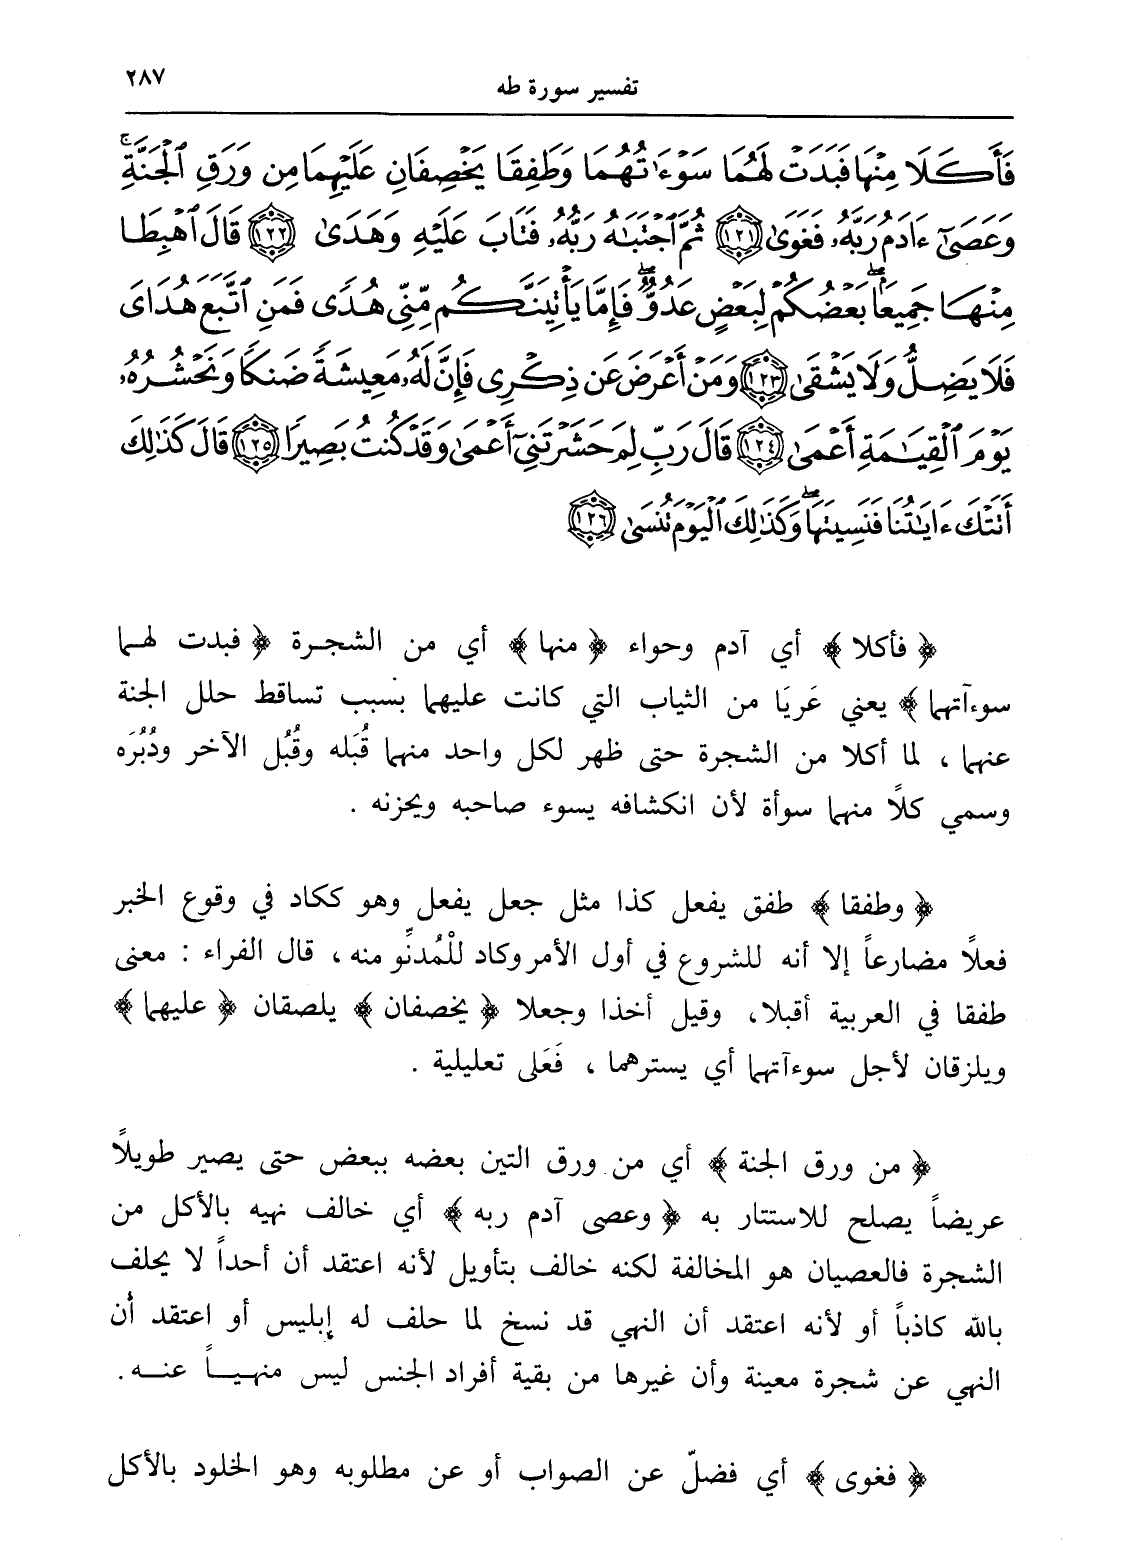 تفسير سورة طه ٢٨٧
فَأَكَلَا مِنْهَا فَبَدَتْ لَهُمَا سَوْءَٰتُهُمَا وَطَفِقَا يَخْصِفَانِ عَلَيْهِمَا مِن وَرَقِ ٱلْجَنَّةِ ۚ
وَعَصَىٰٓ ءَادَمُ رَبَّهُۥ فَغَوَىٰ ﴿١٢١﴾ ثُمَّ ٱجْتَبَٰهُ رَبُّهُۥ فَتَابَ عَلَيْهِ وَهَدَىٰ ﴿١٢٢﴾ قَالَ ٱهْبِطَا
مِنْهَا جَمِيعًۢا ۖ بَعْضُكُمْ لِبَعْضٍ عَدُوٌّ ۖ فَإِمَّا يَأْتِيَنَّكُم مِّنِّى هُدًى فَمَنِ ٱتَّبَعَ هُدَاىَ
فَلَا يَضِلُّ وَلَا يَشْقَىٰ ﴿١٢٣﴾ وَمَنْ أَعْرَضَ عَن ذِكْرِى فَإِنَّ لَهُۥ مَعِيشَةً ضَنكًا وَنَحْشُرُهُۥ
يَوْمَ ٱلْقِيَٰمَةِ أَعْمَىٰ ﴿١٢٤﴾ قَالَ رَبِّ لِمَ حَشَرْتَنِىٓ أَعْمَىٰ وَقَدْ كُنتُ بَصِيرًا ﴿١٢٥﴾ قَالَ كَذَٰلِكَ
أَتَتْكَ ءَايَٰتُنَا فَنَسِيتَهَا ۖ وَكَذَٰلِكَ ٱلْيَوْمَ تُنسَىٰ ﴿١٢٦﴾
﴿ فأكلا ﴾ أي آدم وحواء ﴿ منها ﴾ أي من الشجرة ﴿ فبدت لهما
سوءآتهما ﴾ يعني عَرِيَا من الثياب التي كانت عليهما بسبب تساقط حلل الجنة
عنهما ، لما أكلا من الشجرة حتى ظهر لكل واحد منهما قُبَله وقُبُل الآخر ودُبُرَه
وسمي كلاً منهما سوأة لأن انكشافه يسوء صاحبه ويحزنه .
﴿ وطفقا ﴾ طفق يفعل كذا مثل جعل يفعل وهو ككاد في وقوع الخبر
فعلاً مضارعاً إلا أنه للشروع في أول الأمر وكاد للْمُدنِّو منه ، قال الفراء : معنى
طفقا في العربية أقبلا، وقيل أخذا وجعلا ﴿ يخصفان ﴾ يلصقان ﴿ عليهما ﴾
ويلزقان لأجل سوءآتهما أي يسترهما ، فَعَلى تعليلية .
﴿ من ورق الجنة ﴾ أي من ورق التين بعضه ببعض حتى يصير طويلاً
عريضاً يصلح للاستتار به ﴿ وعصى آدم ربه ﴾ أي خالف نهيه بالأكل من
الشجرة فالعصيان هو المخالفة لكنه خالف بتأويل لأنه اعتقد أن أحداً لا يحلف
بالله كاذباً أو لأنه اعتقد أن النهي قد نسخ لما حلف له إبليس أو اعتقد أن
النهي عن شجرة معينة وأن غيرها من بقية أفراد الجنس ليس منهياً عنه.
﴿ فغوى ﴾ أي فضلّ عن الصواب أو عن مطلوبه وهو الخلود بالأكل